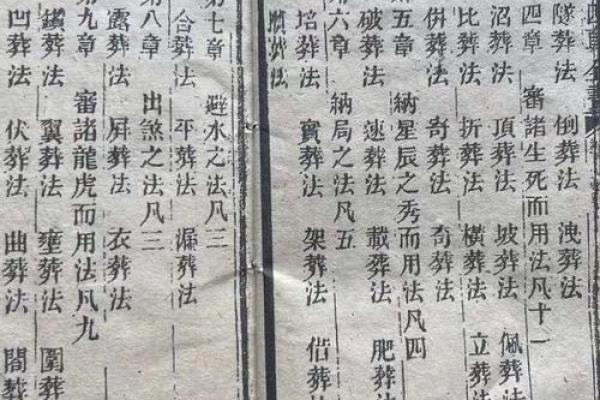 全書
隧葬法 倒葬法 洩葬法
四章 審諸生死而用法凡十一
沼葬法 頂葬法 坡葬法 佩葬法
比葬法 折葬法 橫葬法 立葬
併葬法 奇葬法 奇葬法
五章 納星辰之秀而用法凡四
破葬法 速葬法 載葬法 肥葬
六章 納局之法凡五
培葬法 實葬法 架葬法 借葬
葬法
第七章 避水之法凡三
合葬法 平葬法 漏葬法
第八章 出煞之法凡三
露葬法 屏葬法 衣葬法
第九章 審諸龍虎而用法凡九
葬法 翼葬法 壅葬法 圍葬
凹葬法 伏葬法 曲葬法 葬